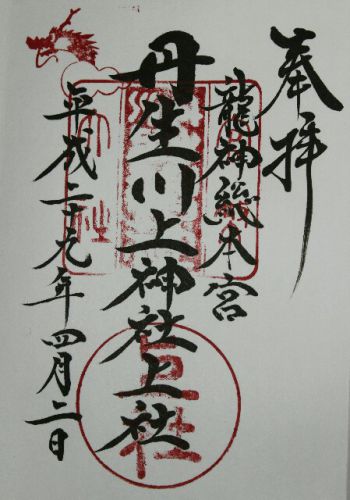 奉拝
龍神総本宮
丹生川上神社上社
平成二十九年四月二日